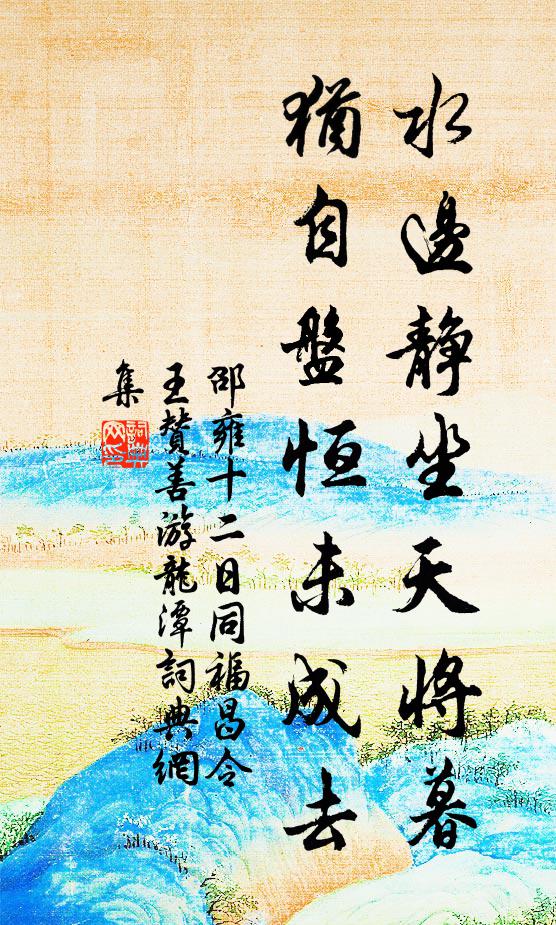 水邊静坐天將暮
猶自盤恒未成去
邵雍十二日同福昌令
王贊善游龍潭詞典網
集